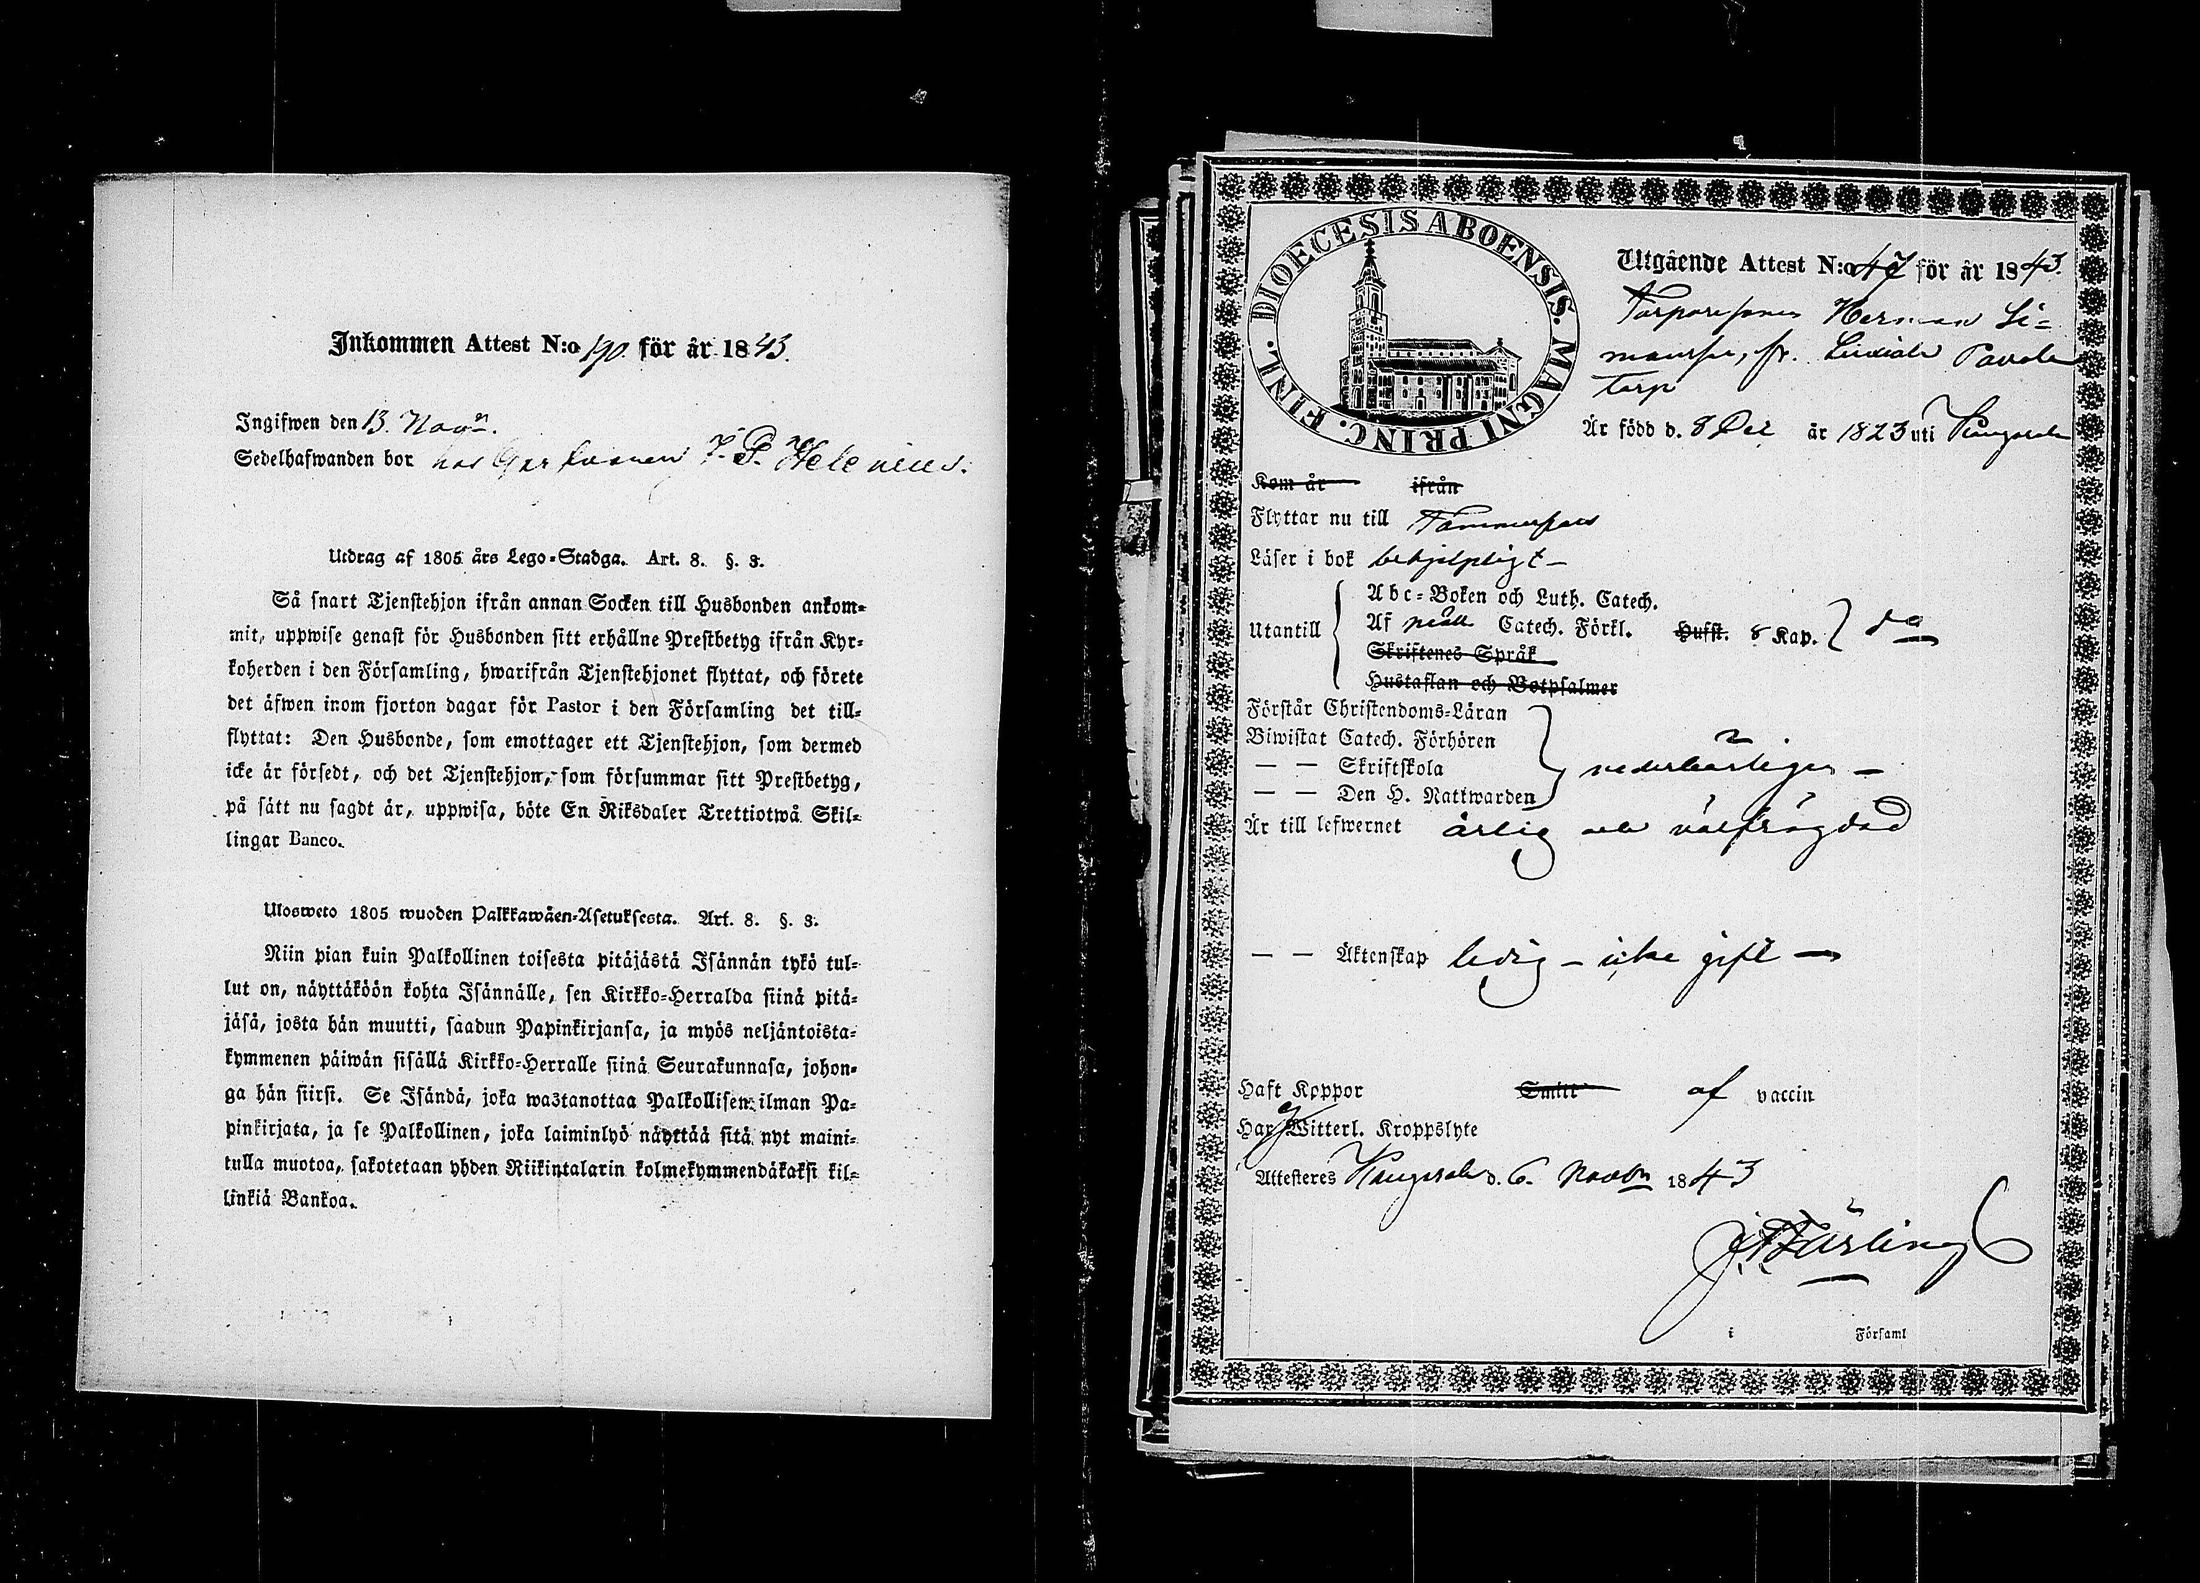 Inkommen Attest N:o 190 för år 1843.
Ingifwen den 13. Nov:
Sedelhafwanden bor hos Garfvaren J. P. Helenius.
Utdrag af 1805 års Lego-Stadga. Art. 8. §. 3.
Så snart Tjenstehjon ifrån annan Socken till Husbonden ankom-
mit, uppwise genast för Husbonden sitt erhållne Prestbetyg ifrån Kyr-
koherden i den Församling, hwarifrån Tjenstehjonet flyttat, och förete
det äfwen inom fjorton dagar för Pastor i den Församling det till-
flyttat: Den Husbonde, som emottager ett Tjenstehjon, som dermed
icke är försedt, och det Tjenstehjon, som försummar sitt Prestbetyg,
på sätt nu sagdt är, uppwisa, böte En Riksdaler Trettiotwå Skil-
lingar Banco.
Ulosweto 1805 wuoden Palkkawäen-Asetuksesta. Art. 8. §. 3.
Niin pian kuin Palkollinen toisesta pitäjästä Isännän tykö tul-
lut on, näyttäköön kohta Isännälle, sen Kirkko-Herralda siinä pitä-
jäsä, josta hän muutti, saadun Papinkirjansa, ja myös neljäntoista-
kymmenen päiwän sisällä Kirkko-Herralle siinä Seurakunnasa, johon-
ga hän siirsi. Se Isändä, joka wastanottaa Palkollisen ilman Pa-
pinkirjata, ja se Palkollinen, joka laiminlyö näyttää sitä nyt maini-
tulla muotoa, sakotetaan yhden Riikintalarin kolmekymmendäkaksi kil-
linkiä Bankoa.
DIOECESIS ABOENSIS. MAGNI PRINC. FINL.
Utgående Attest N:o 47 för år 1843.
Torparesonen Herman Si-
monsson, fr. Liuksiala Pavola
torp
Är född d. 8 Dec år 1823 uti Kangasala
Kom år ifrån
Flyttar nu till Tammerfors
Läser i bok behjelpligt –
Utantill
Abc-Boken och Luth. Catech.
Af Catech. Förkl. Hufst. 8 Kap. do
Skriftenes Språk
Hustaflan och Botpsalmer
Förstår Christendoms-Läran
Biwistat Catech. Förhören
— — Skriftskola vederbörligen –
— — Den H. Nattwarden
Är till lefwernet ärlig och välfrägdad
— — Äktenskap ledig – icke gift —
Haft Koppor Smitt af vaccin
Har ej Witterl. Kroppslyte
Attesteres Kangasala d. 6. Novbr 1843
i Församl